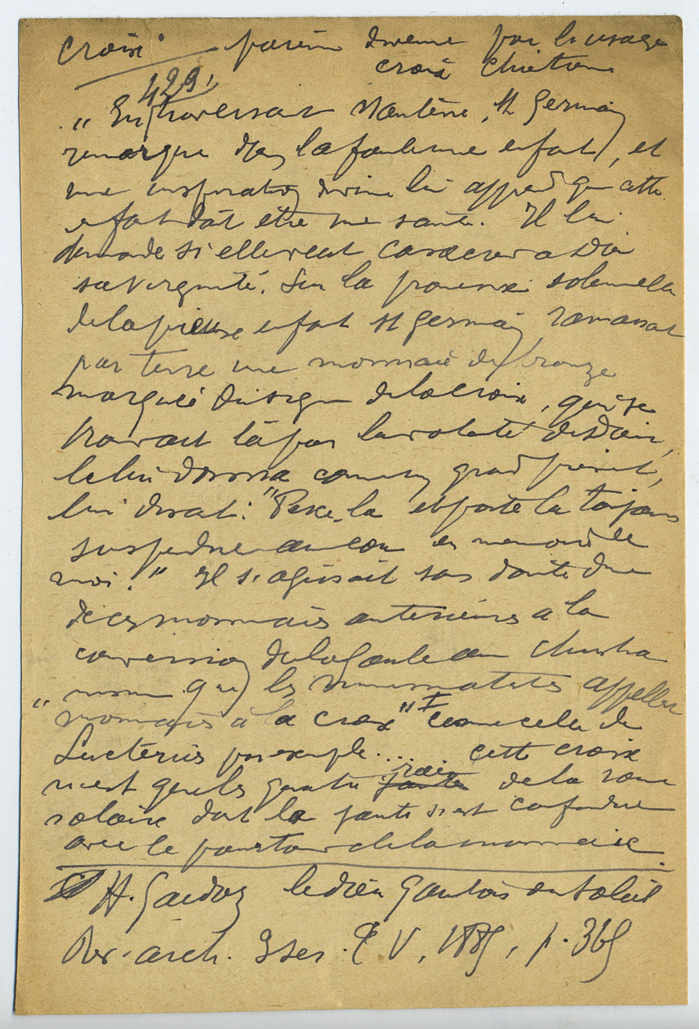 croix païenne devenue par l'usage
croix chrétienne
429,
"En traversant Nanterre, St Germain
remarque dans la foule une enfant, et
une inspiration divine lui apprend que cette
enfant doit être une sainte. Il lui
demande si elle veut consacrer a Dieu
sa virginité. Sur la promesse solennelle
de la pieuse enfant St Germain ramassa
par terre une monnaie de bronze
marquée du signe de la croix, qui se
trouvait là par la volonté de Dieu,
et la lui donna comme grand présent,
lui disant: "Perce-la et porte la toujours
suspendue au cou en mémoire de
moi." Il s'agissait sans doute d'une
de ces monnaies antérieures à la
conversion de la Gaule au christia
nisme que les numismatistes appellent
"monnaies à la croix" comme celle de
Lucterius par exemple... cette croix
n'est que les quatre rais de la roue
solaire dont la jante s'est confondue
avec le pourtour de la monnaie.
H. Gaidoz le dieu Gaulois du Soleil
Rev. arch. 3 ser. T V, 1885, p. 369